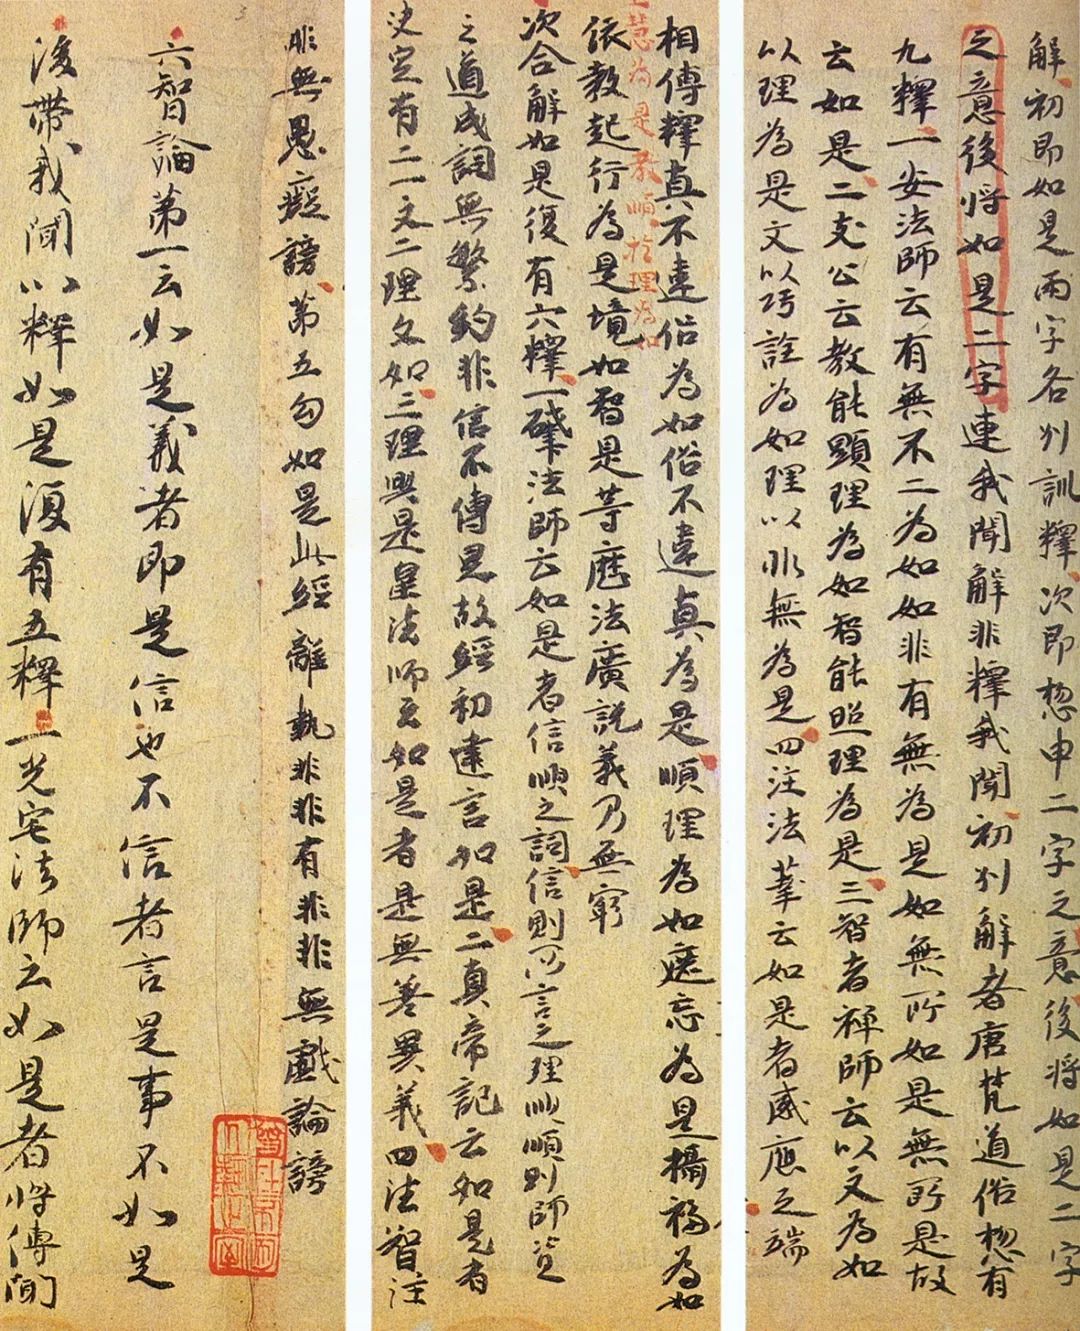 解初即如是兩字各別訓釋次即惣申二字之意後將如是二字
之意後將如是二字連我聞解非釋我聞初別解者唐梵道俗惣有
九釋一安法師云有無不二為如如非有無為是如無所如是無所是故
云如是二支公云教能顯理為如智能照理為是三智者禪師云以文為如
以理為是文以巧詮為如理以非無為是四注法華云如是者感應之端
相傳釋真不違俗為如俗不違真為是順理為如遮忘為是攝福為如
慧為是教順於理為如
依教起行為是境如智是等歷法廣說義乃無窮
次合解如是復有六釋一肇法師云如是者信順之詞信則所言之理順順則師資
之道成詞無繁約非信不傳是故經初建言如是二真帝記云如是者
決定有二一文二理文如三理與是皇法師云如是者是無差異義四法智注
非無愚癡謗第五句如是此經離執非非有非非無戲論謗
六智論第一云如是義者即是信也不信者言是事不如是
後帶我聞以釋如是復有五釋一光宅法師云如是者將傳聞